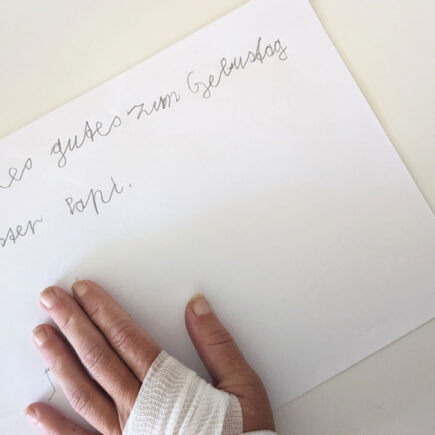 les gutes zum Gebustag
ster Papi.